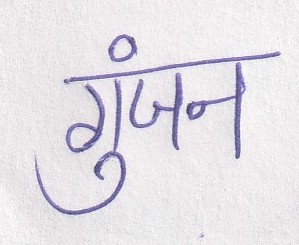 गुंजन